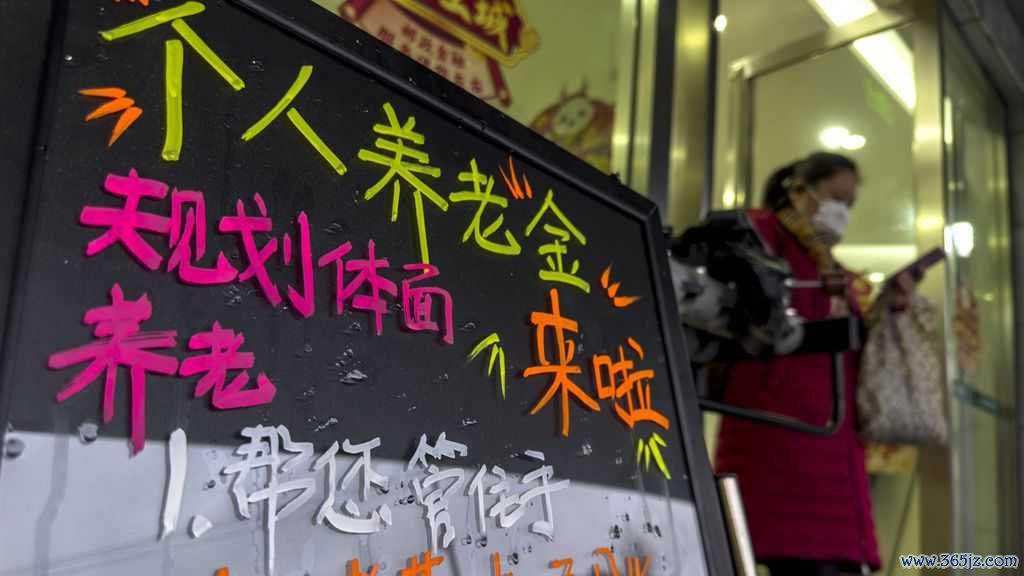 个人养老金
来啦
规划体面
养老
1.帮您管住手
www.365jz.com